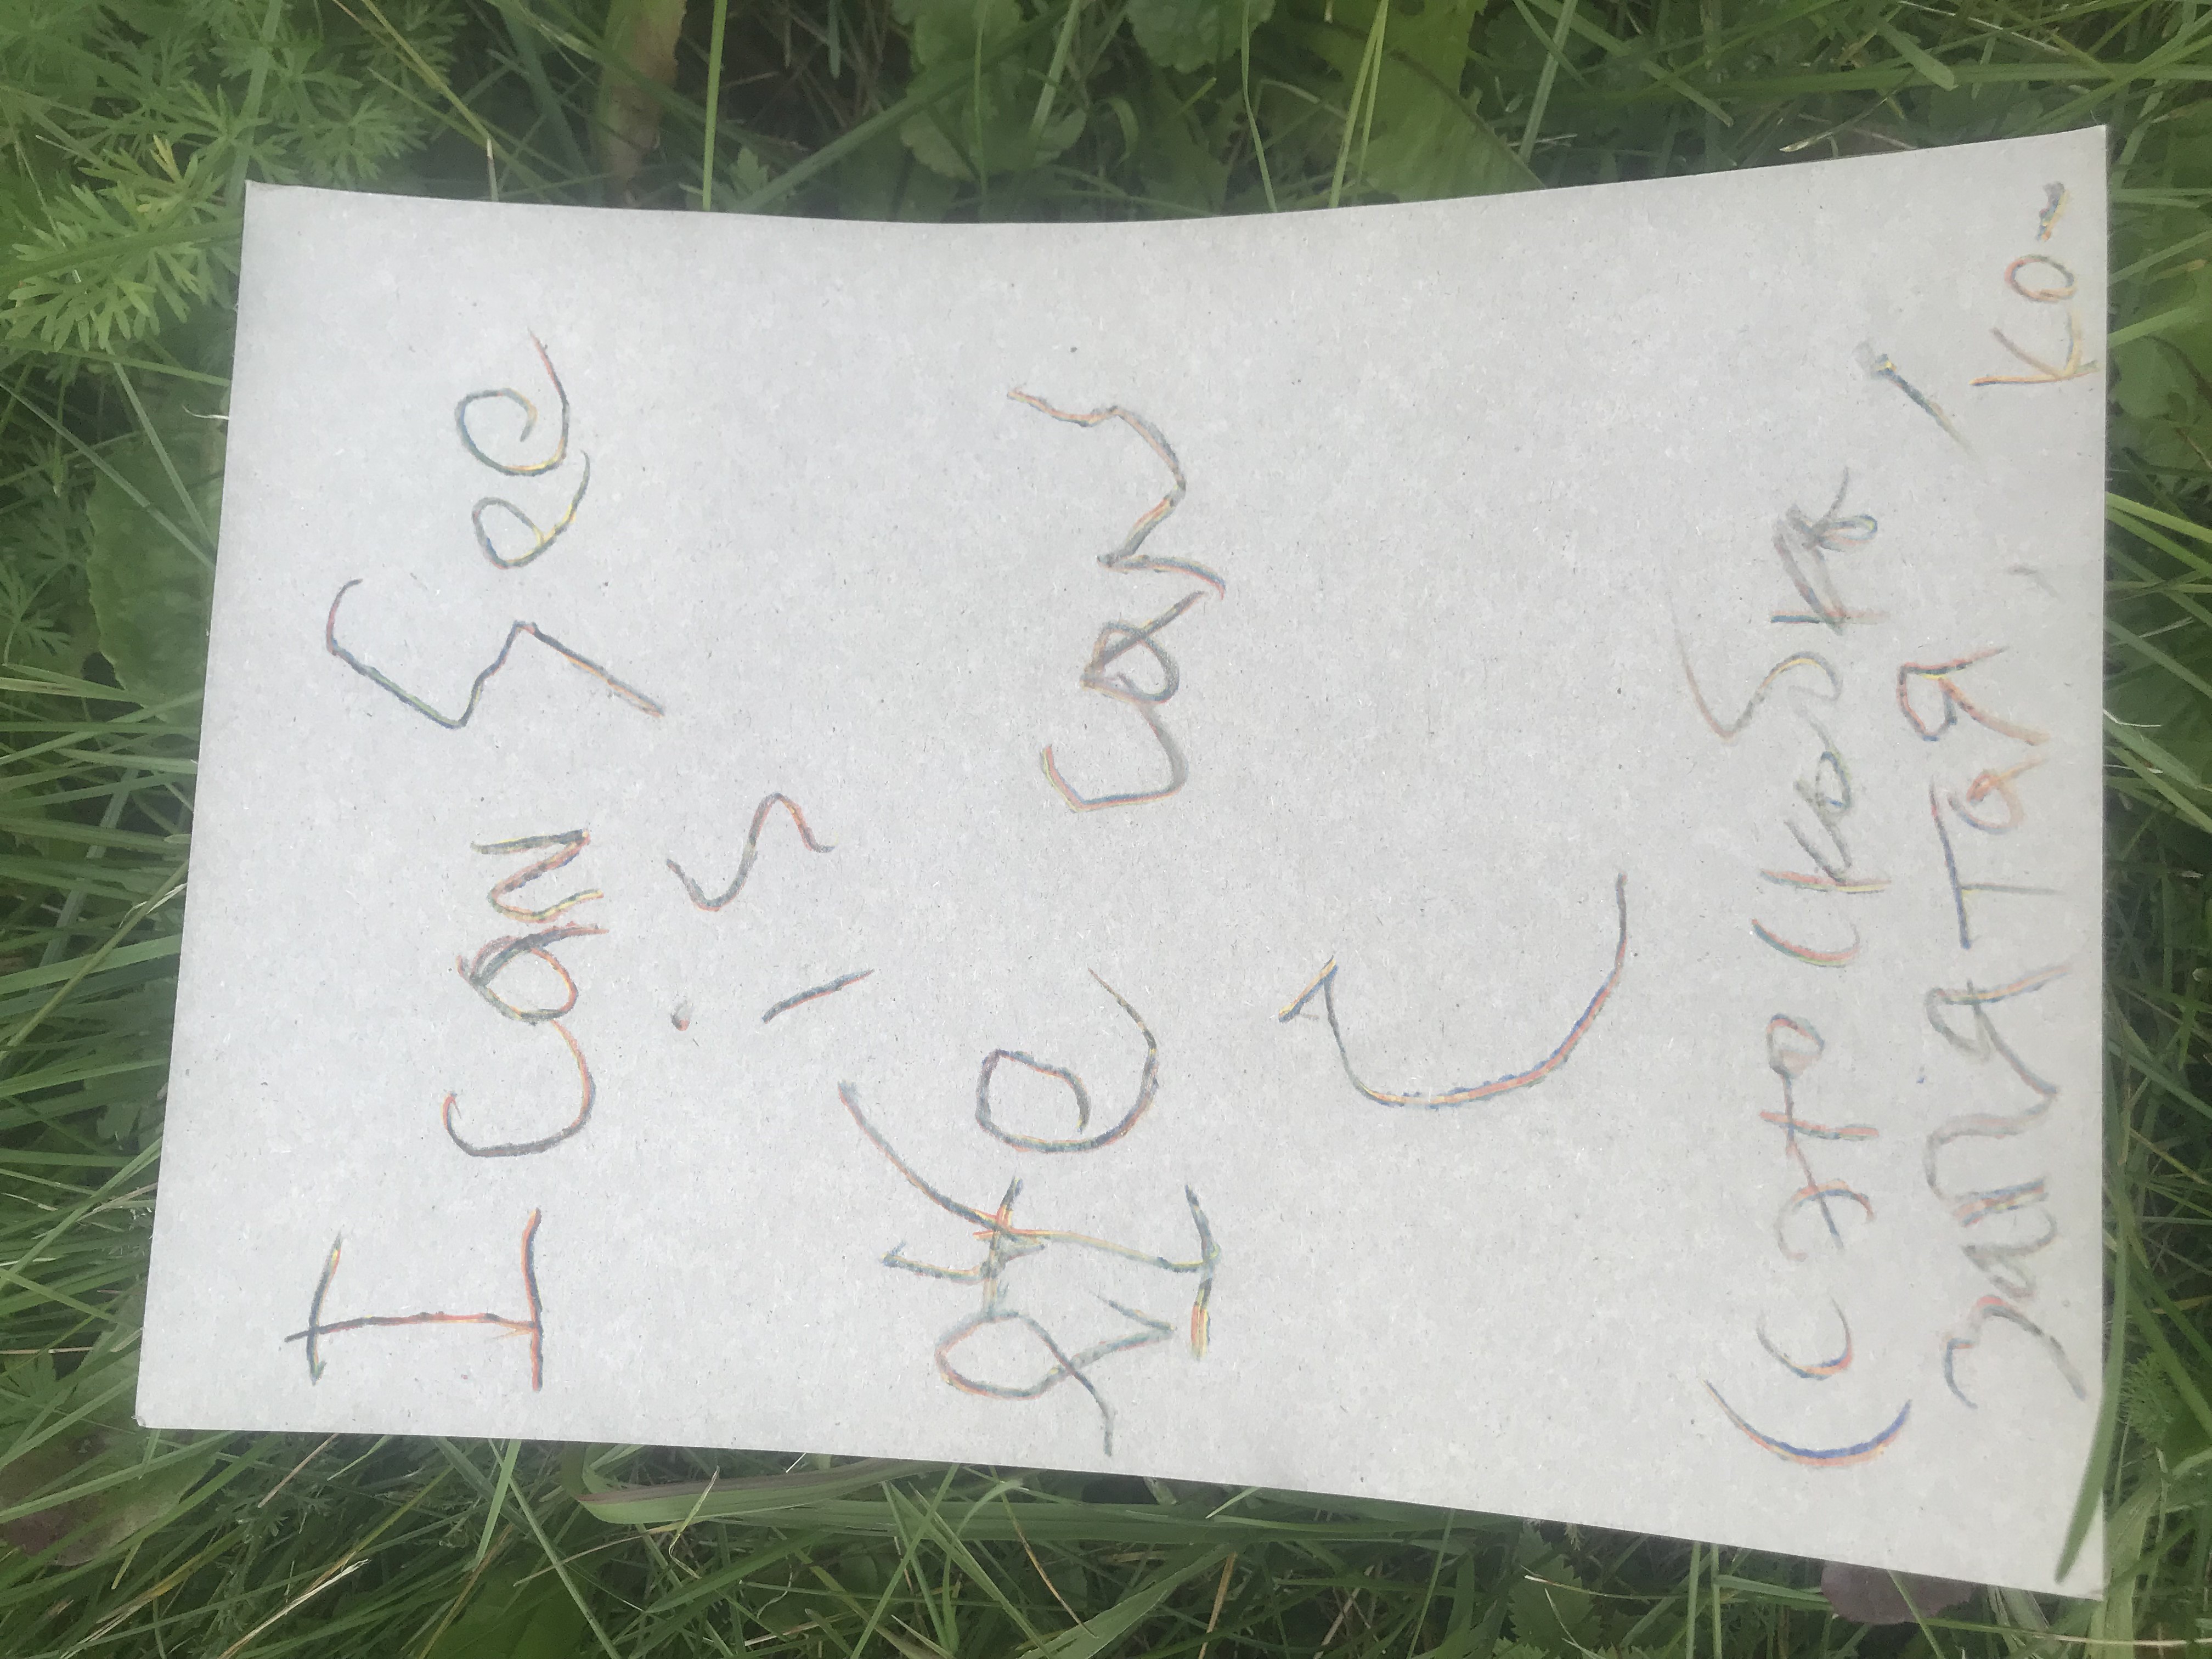 I can see
is
eye can
C
(с это скобка,
запятая, ко-